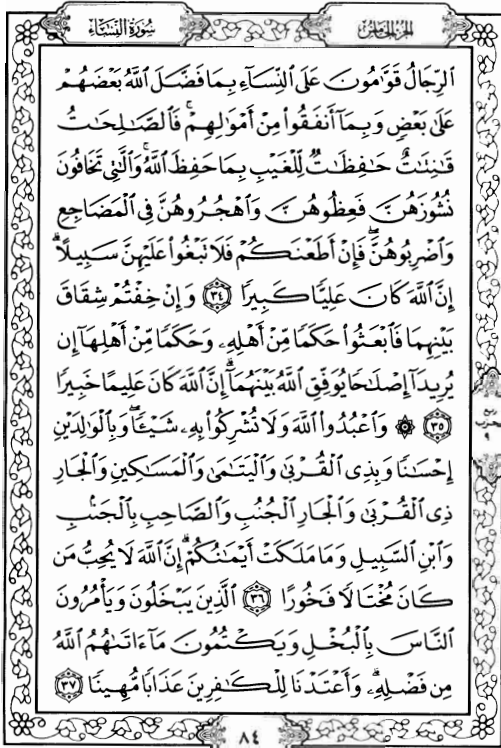 سُورَةُ النِّسَاءِ
الجُزْءُ الخَامِسُ
الرِّجَالُ قَوَّٰمُونَ عَلَى النِّسَآءِ بِمَا فَضَّلَ اللَّهُ بَعْضَهُمْ
عَلَىٰ بَعْضٍ وَبِمَآ أَنفَقُوا۟ مِنْ أَمْوَٰلِهِمْ ۚ فَالصَّٰلِحَٰتُ
قَٰنِتَٰتٌ حَٰفِظَٰتٌ لِّلْغَيْبِ بِمَا حَفِظَ اللَّهُ ۚ وَالَّٰتِى تَخَافُونَ
نُشُوزَهُنَّ فَعِظُوهُنَّ وَاهْجُرُوهُنَّ فِى الْمَضَاجِعِ
وَاضْرِبُوهُنَّ ۖ فَإِنْ أَطَعْنَكُمْ فَلَا تَبْغُوا۟ عَلَيْهِنَّ سَبِيلًا ۗ
إِنَّ اللَّهَ كَانَ عَلِيًّا كَبِيرًا ٣٤ وَإِنْ خِفْتُمْ شِقَاقَ
بَيْنِهِمَا فَابْعَثُوا۟ حَكَمًا مِّنْ أَهْلِهِۦ وَحَكَمًا مِّنْ أَهْلِهَآ إِن
يُرِيدَآ إِصْلَٰحًا يُوَفِّقِ اللَّهُ بَيْنَهُمَآ ۗ إِنَّ اللَّهَ كَانَ عَلِيمًا خَبِيرًا
٣٥ ۞ وَاعْبُدُوا۟ اللَّهَ وَلَا تُشْرِكُوا۟ بِهِۦ شَيْـًٔا ۖ وَبِالْوَٰلِدَيْنِ
إِحْسَٰنًا وَبِذِى الْقُرْبَىٰ وَالْيَتَٰمَىٰ وَالْمَسَٰكِينِ وَالْجَارِ
ذِى الْقُرْبَىٰ وَالْجَارِ الْجُنُبِ وَالصَّاحِبِ بِالْجَنۢبِ
وَابْنِ السَّبِيلِ وَمَا مَلَكَتْ أَيْمَٰنُكُمْ ۗ إِنَّ اللَّهَ لَا يُحِبُّ مَن
كَانَ مُخْتَالًا فَخُورًا ٣٦ الَّذِينَ يَبْخَلُونَ وَيَأْمُرُونَ
النَّاسَ بِالْبُخْلِ وَيَكْتُمُونَ مَآ ءَاتَىٰهُمُ اللَّهُ
مِن فَضْلِهِۦ ۗ وَأَعْتَدْنَا لِلْكَٰفِرِينَ عَذَابًا مُّهِينًا ٣٧
٨٤